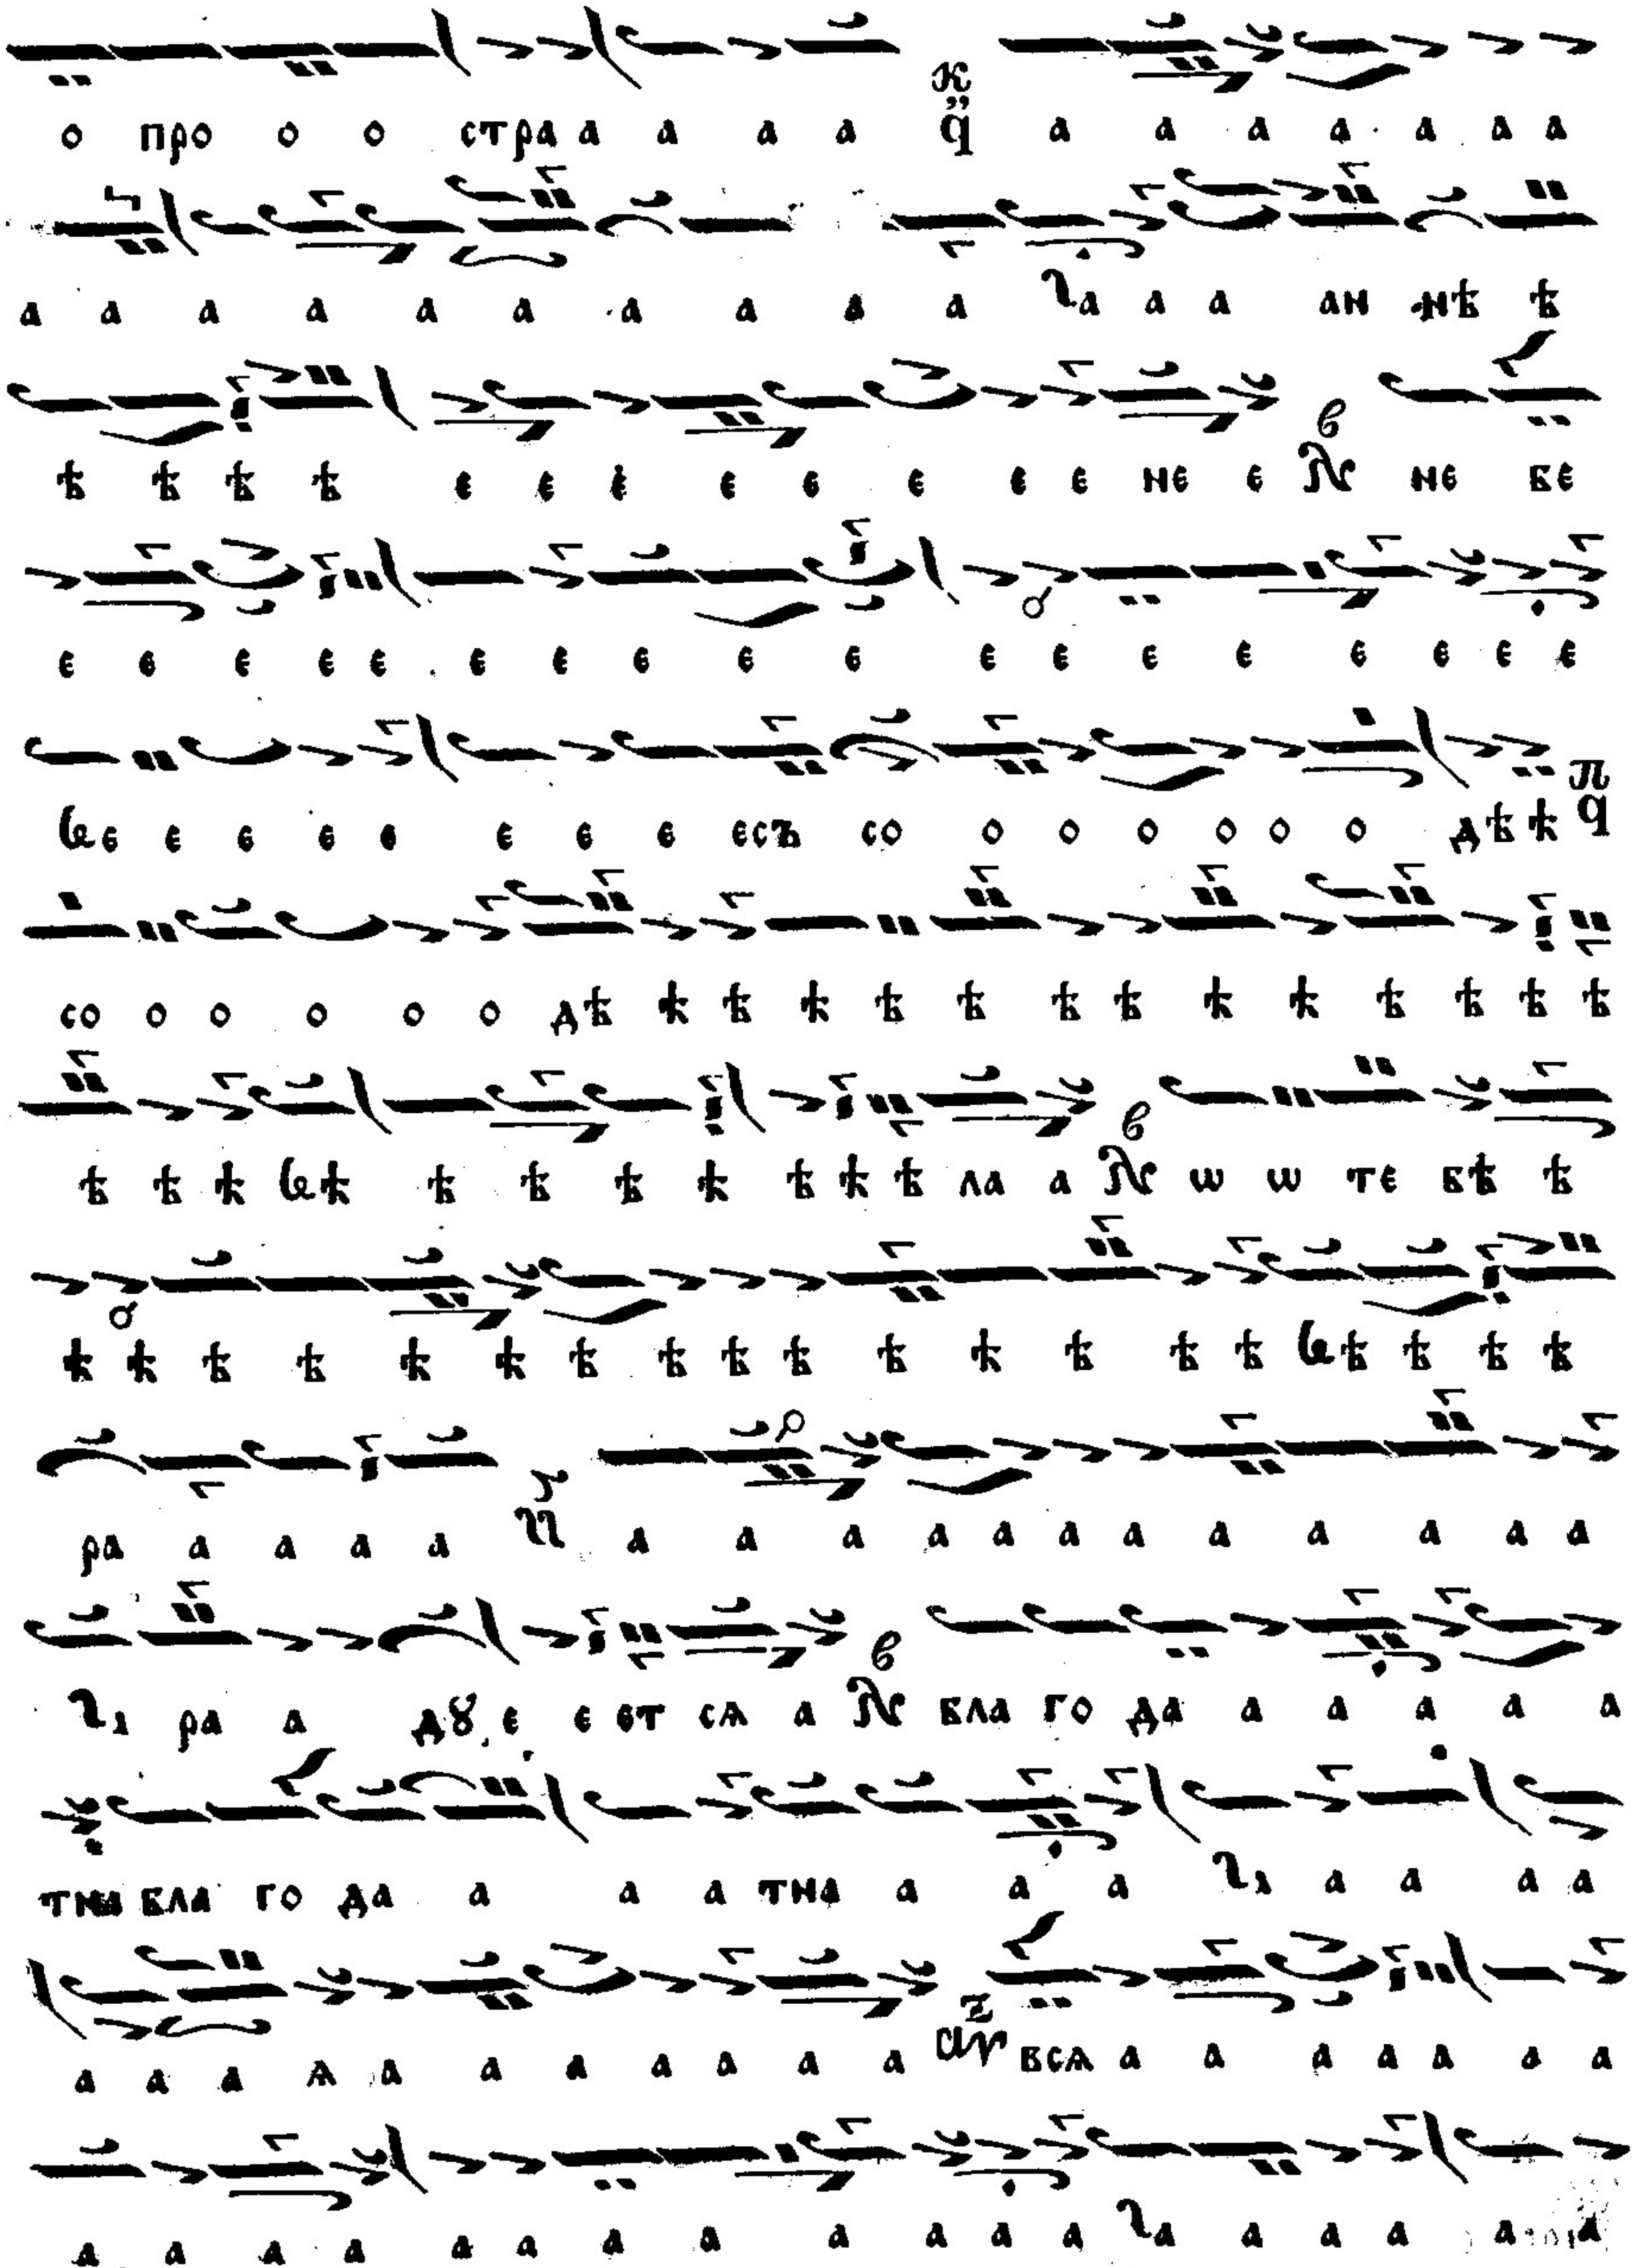 о про о о стра а а а а к ҁ а а а а а а а
а а а а а а а а а а а а а ан нѣ ѣ
ѣ ѣ ѣ ѣ є є є є є є є є не є в не бе
є є є є є є є є є є є є є є є є є є
є є є є є є є є єсъ со о о о о о о дѣ ѣ п ҁ
со о о о о о дѣ ѣ ѣ ѣ ѣ ѣ ѣ ѣ ѣ ѣ ѣ ѣ ѣ ѣ
ѣ ѣ ѣ ѣ ѣ ѣ ѣ ѣ ѣ ѣ ѣ ла а в ѡ ѡ те бѣ ѣ
ѣ ѣ ѣ ѣ ѣ ѣ ѣ ѣ ѣ ѣ ѣ ѣ ѣ ѣ ѣ ѣ ѣ ѣ ѣ
ра а а а а а а а а а а а а а а а а
ра а дꙋ є є єт сѧ а в бла го да а а а а а
тна бла го да а а а тна а а а а а а а
а а а ѧ а а а а а а а всѧ а а а а а а а
а а а а а а а а а а а а а а а а а а